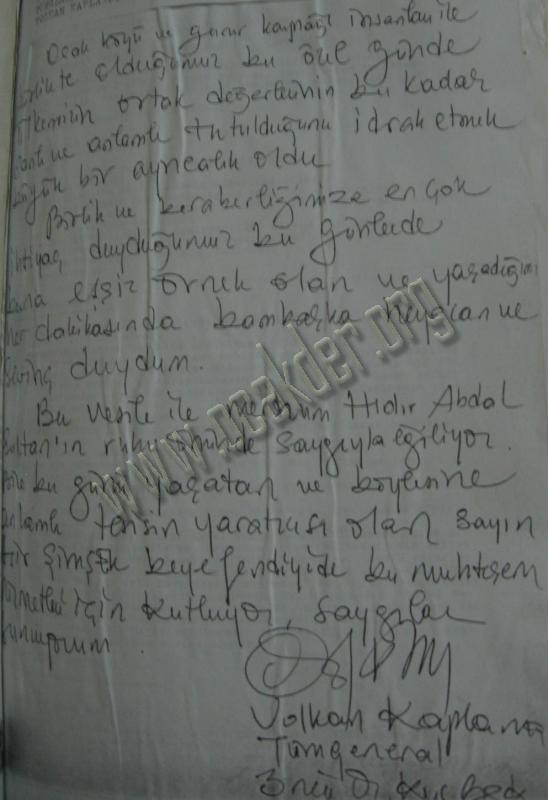 Ocak köyü ve gurur kaynağı insanları ile
olduğumuz bu özel günde
ortak değerlerinin bu kadar
ve anlamlı tutulduğunu idrak etmek
bir ayrıcalık oldu
Birlik ve beraberliğimize en çok
ihtiyaç duyduğumuz bu günlerde
bana eşsiz örnek olan ve yaşadığım
her dakikasında bambaşka heyecan ve
sevinç duydum.
Bu vesile ile merhum Hıdır Abdal
Sultan'ın ruhu önünde saygıyla eğiliyor.
bu günü yaşatan ve böylesine
anlamlı yaratıcısı olan sayın
Şimşek beyefendiyide bu muhteşem
hizmetleri için kutluyor, saygılar
sunuyorum
Volkan Kaplama
Tümgeneral
3 ncü
www.ocakder.org